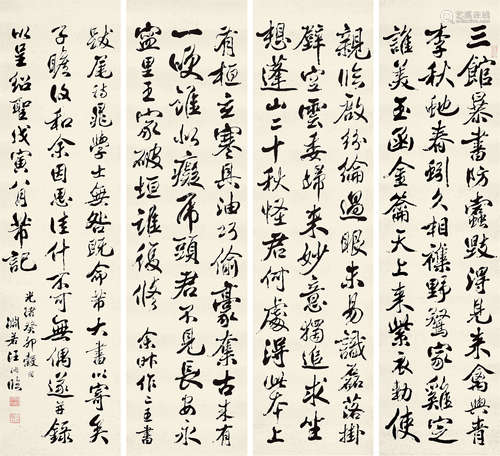 三館暴書防蠹毀得見来禽與青
李秋虵春蚓久相襍野鶩家雞定
誰美玉函金籥天上来紫衣勅使
親臨啟紛綸過眼未易識磊落掛
壁空雲委歸来妙意獨追求坐
想蓬山二十秋怪君何處得此本上
有桓玄寒具油巧偷豪奪古来有
一咲誰似癡虎頭君不見長安永
寍里王家破垣誰復修 余昨作二王書
跋尾詩晁學士無咎既命芾大書以寄矣
子瞻復和余因思佳什不可無偶遂并錄
以呈紹聖戊寅八月芾記
光緒癸卯穀日
淵若汪洵臨